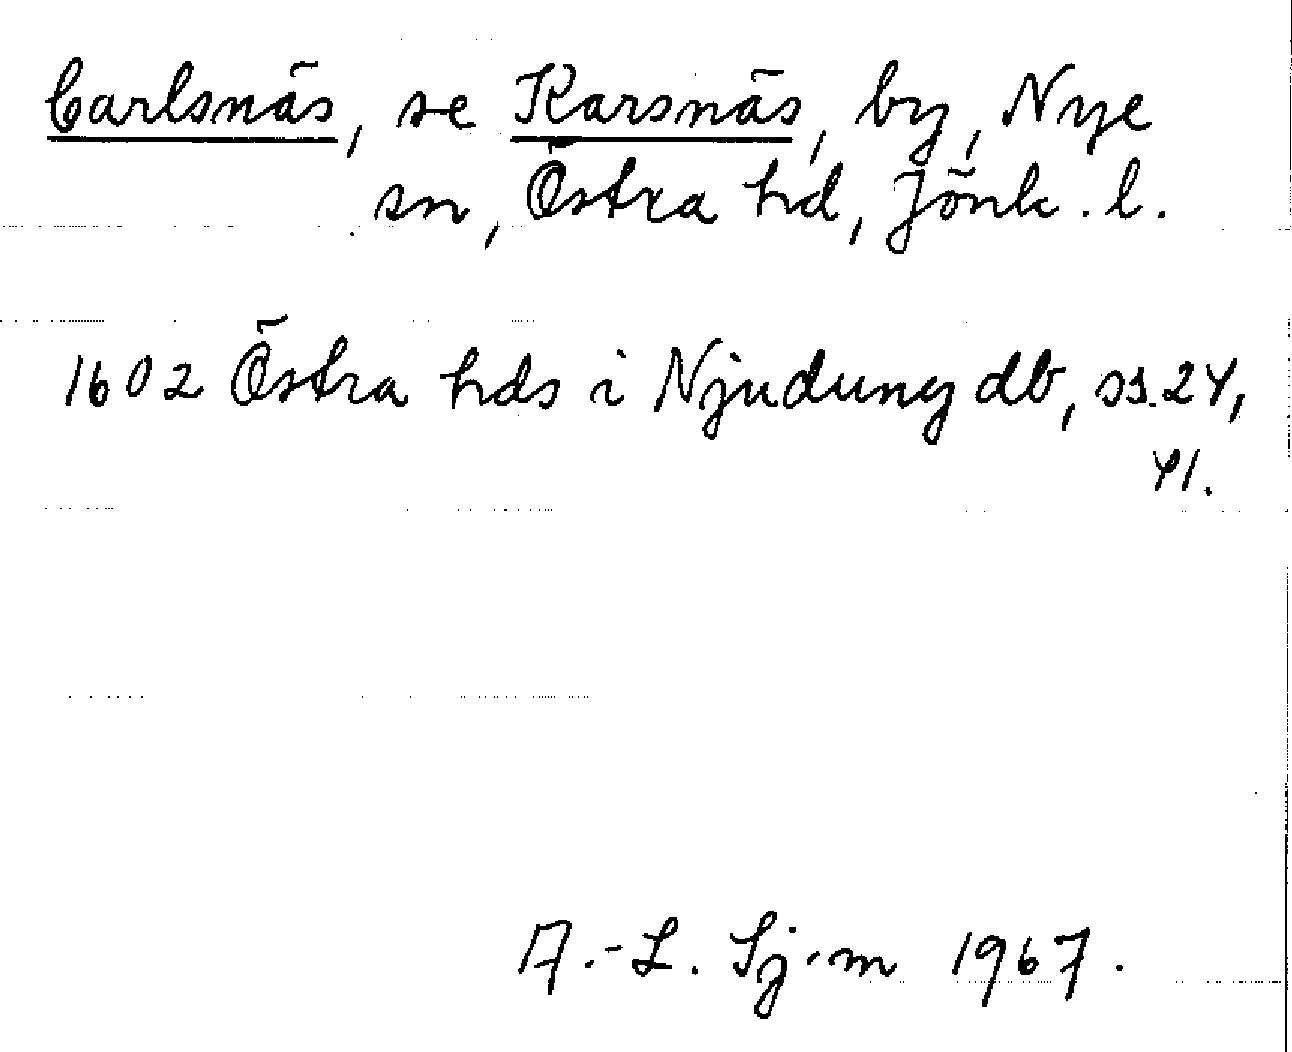 Carlsnäs, se Karsnäs, by, Nye
sn, Östra hd, Jönk. l.
1602 Östra hds i Njudung db, ss. 24,
41.
A.-L. Sj-m 1967.